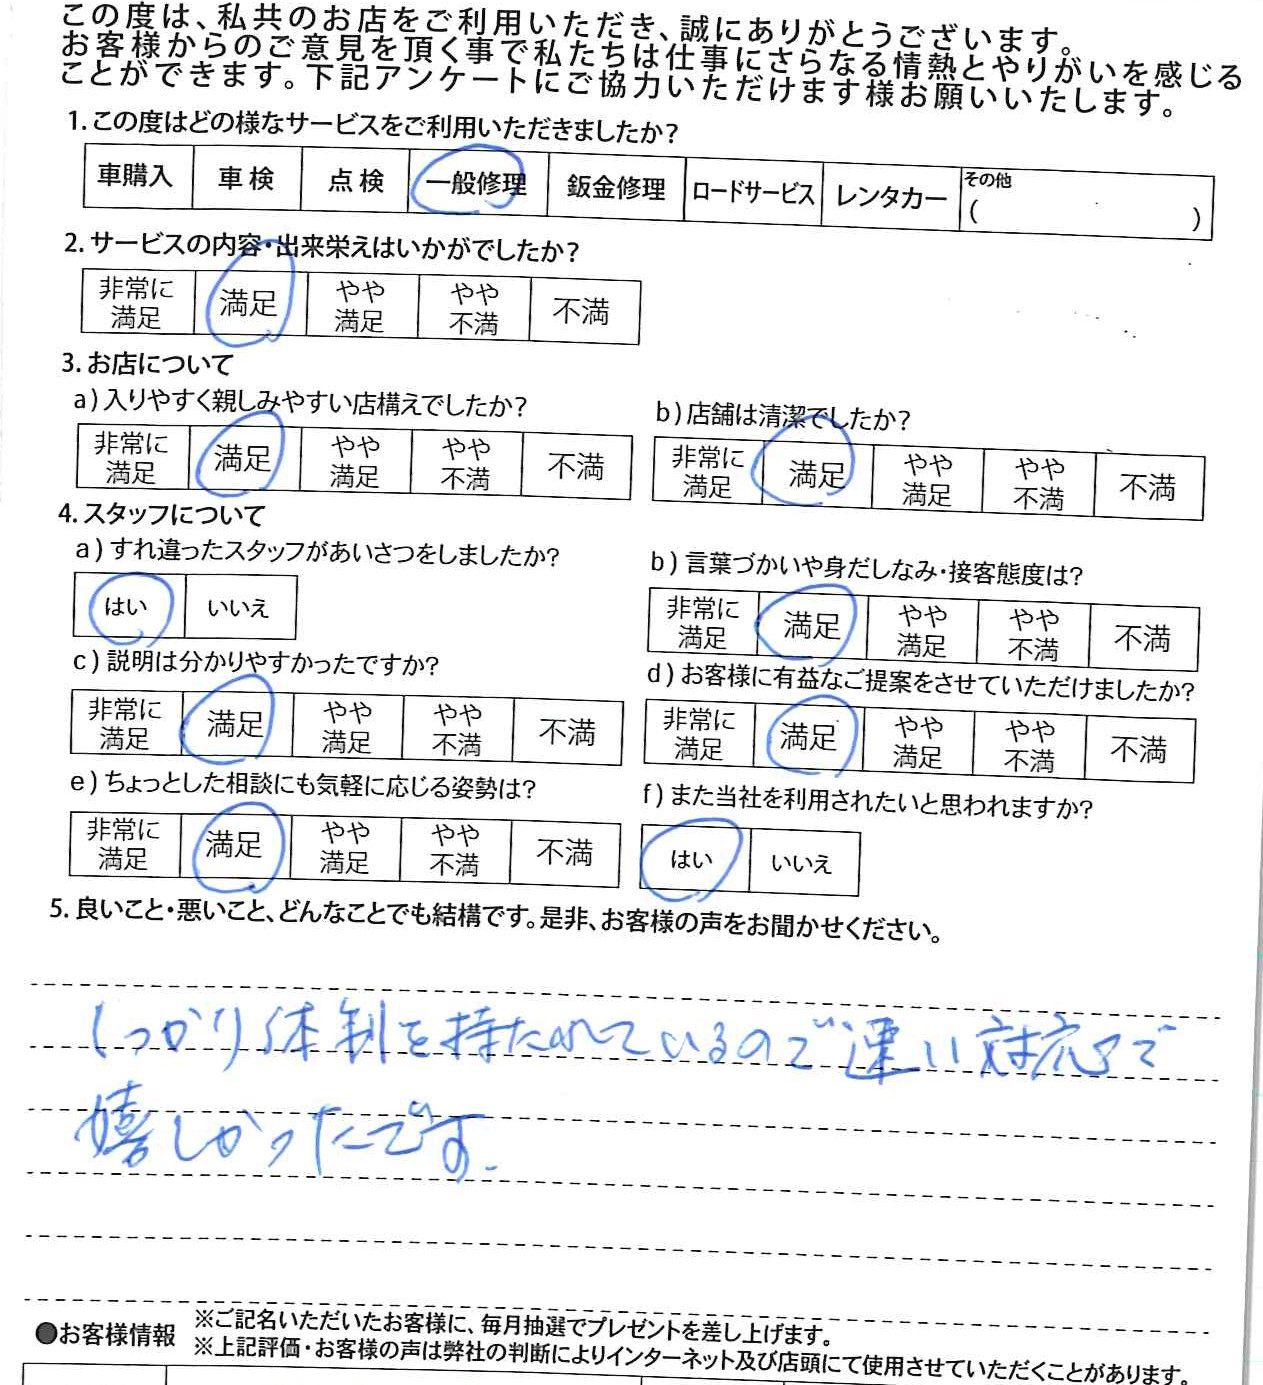 この度は、私共のお店をご利用いただき、誠にありがとうございます。
お客様からのご意見を頂く事で私たちは仕事にさらなる情熱とやりがいを感じる
ことができます。下記アンケートにご協力いただけます様お願いいたします。
1. この度はどの様なサービスをご利用いただきましたか?
車購入 車検 点検 一般修理 鈑金修理 ロードサービス レンタカー その他 ( )
2. サービスの内容・出来栄えはいかがでしたか?
非常に満足 満足 やや満足 やや不満 不満
3. お店について
a) 入りやすく親しみやすい店構えでしたか?
非常に満足 満足 やや満足 やや不満 不満
b) 店舗は清潔でしたか?
非常に満足 満足 やや満足 やや不満 不満
4. スタッフについて
a) すれ違ったスタッフがあいさつをしましたか?
はい いいえ
b) 言葉づかいや身だしなみ・接客態度は?
非常に満足 満足 やや満足 やや不満 不満
c) 説明は分かりやすかったですか?
非常に満足 満足 やや満足 やや不満 不満
d) お客様に有益なご提案をさせていただけましたか?
非常に満足 満足 やや満足 やや不満 不満
e) ちょっとした相談にも気軽に応じる姿勢は?
非常に満足 満足 やや満足 やや不満 不満
f) また当社を利用されたいと思われますか?
はい いいえ
5. 良いこと・悪いこと、どんなことでも結構です。是非、お客様の声をお聞かせください。
しっかり体制を持たれているので速い対応で
嬉しかったです.
●お客様情報
※ご記名いただいたお客様に、毎月抽選でプレゼントを差し上げます。
※上記評価・お客様の声は弊社の判断によりインターネット及び店頭にて使用させていただくことがあります。